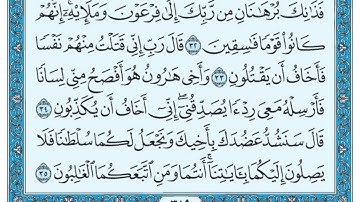 فَذَٰنِكَ بُرْهَٰنَانِ مِن رَّبِّكَ إِلَىٰ فِرْعَوْنَ وَمَلَإِيْهِۦٓ ۚ إِنَّهُمْ
كَانُوا۟ قَوْمًا فَٰسِقِينَ ٣٢ قَالَ رَبِّ إِنِّى قَتَلْتُ مِنْهُمْ نَفْسًا
فَأَخَافُ أَن يَقْتُلُونِ ٣٣ وَأَخِى هَٰرُونُ هُوَ أَفْصَحُ مِنِّى لِسَانًا
فَأَرْسِلْهُ مَعِىَ رِدْءًا يُصَدِّقُنِىٓ ۖ إِنِّىٓ أَخَافُ أَن يُكَذِّبُونِ ٣٤
قَالَ سَنَشُدُّ عَضُدَكَ بِأَخِيكَ وَنَجْعَلُ لَكُمَا سُلْطَٰنًا فَلَا
يَصِلُونَ إِلَيْكُمَا ۚ بِـَٔايَٰتِنَآ أَنتُمَا وَمَنِ ٱتَّبَعَكُمَا ٱلْغَٰلِبُونَ ٣٥